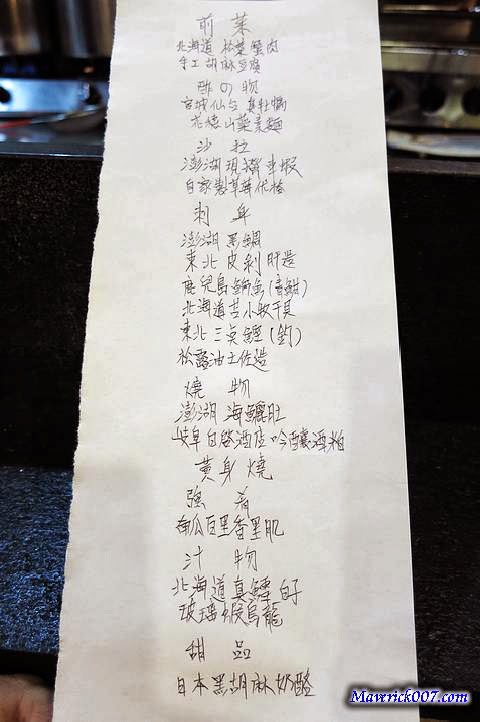 前菜
北海道 松葉蟹肉
手工胡麻豆腐
酢の物
宮城仙台 真牡蠣
花穗山藥素麵
沙拉
澎湖現撈車蝦
自家製草莓优格
刺身
澎湖 黑鯛
東北皮剝肝造
鹿兒島鰤魚(青魽)
北海道苫小牧干貝
東北三点鰹(釣)
松露油土佐造
燒物
澎湖 海鱺肚
岐阜白啓酒店吟釀酒粕
黃身燒
強肴
南瓜百里香里肌
汁物
北海道真鱈白子
玻璃蝦烏龍
甜品
日本黑胡麻奶酪
Maverick007.com